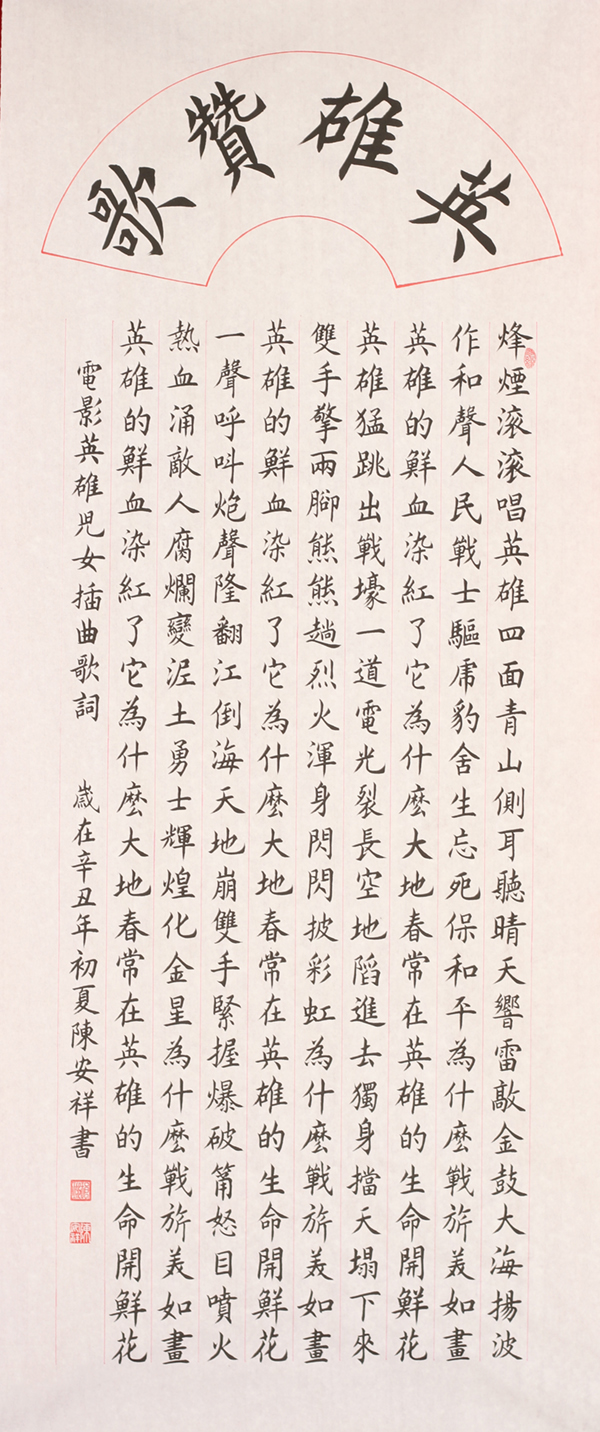 英雄贊歌
烽煙滚滚唱英雄四面青山側耳聽晴天響雷敲金鼓大海揚波
作和聲人民戰士驅虎豹舍生忘死保和平為什麼戰旂美如畫
英雄的鮮血染紅了它為什麼大地春常在英雄的生命開鮮花
英雄猛跳出戰壕一道電光裂長空地陷進去獨身擋天塌下來
雙手擎兩腳熊熊趟烈火渾身閃閃披彩虹為什麼戰旂美如畫
英雄的鮮血染紅了它為什麼大地春常在英雄的生命開鮮花
一聲呼叫炮聲隆翻江倒海天地崩雙手緊握爆破筩怒目噴火
熱血涌敵人腐爛變泥土勇士輝煌化金星為什麼戰旂美如畫
英雄的鮮血染紅了它為什麼大地春常在英雄的生命開鮮花
電影英雄兒女插曲歌詞 歲在辛丑年初夏陳安祥書